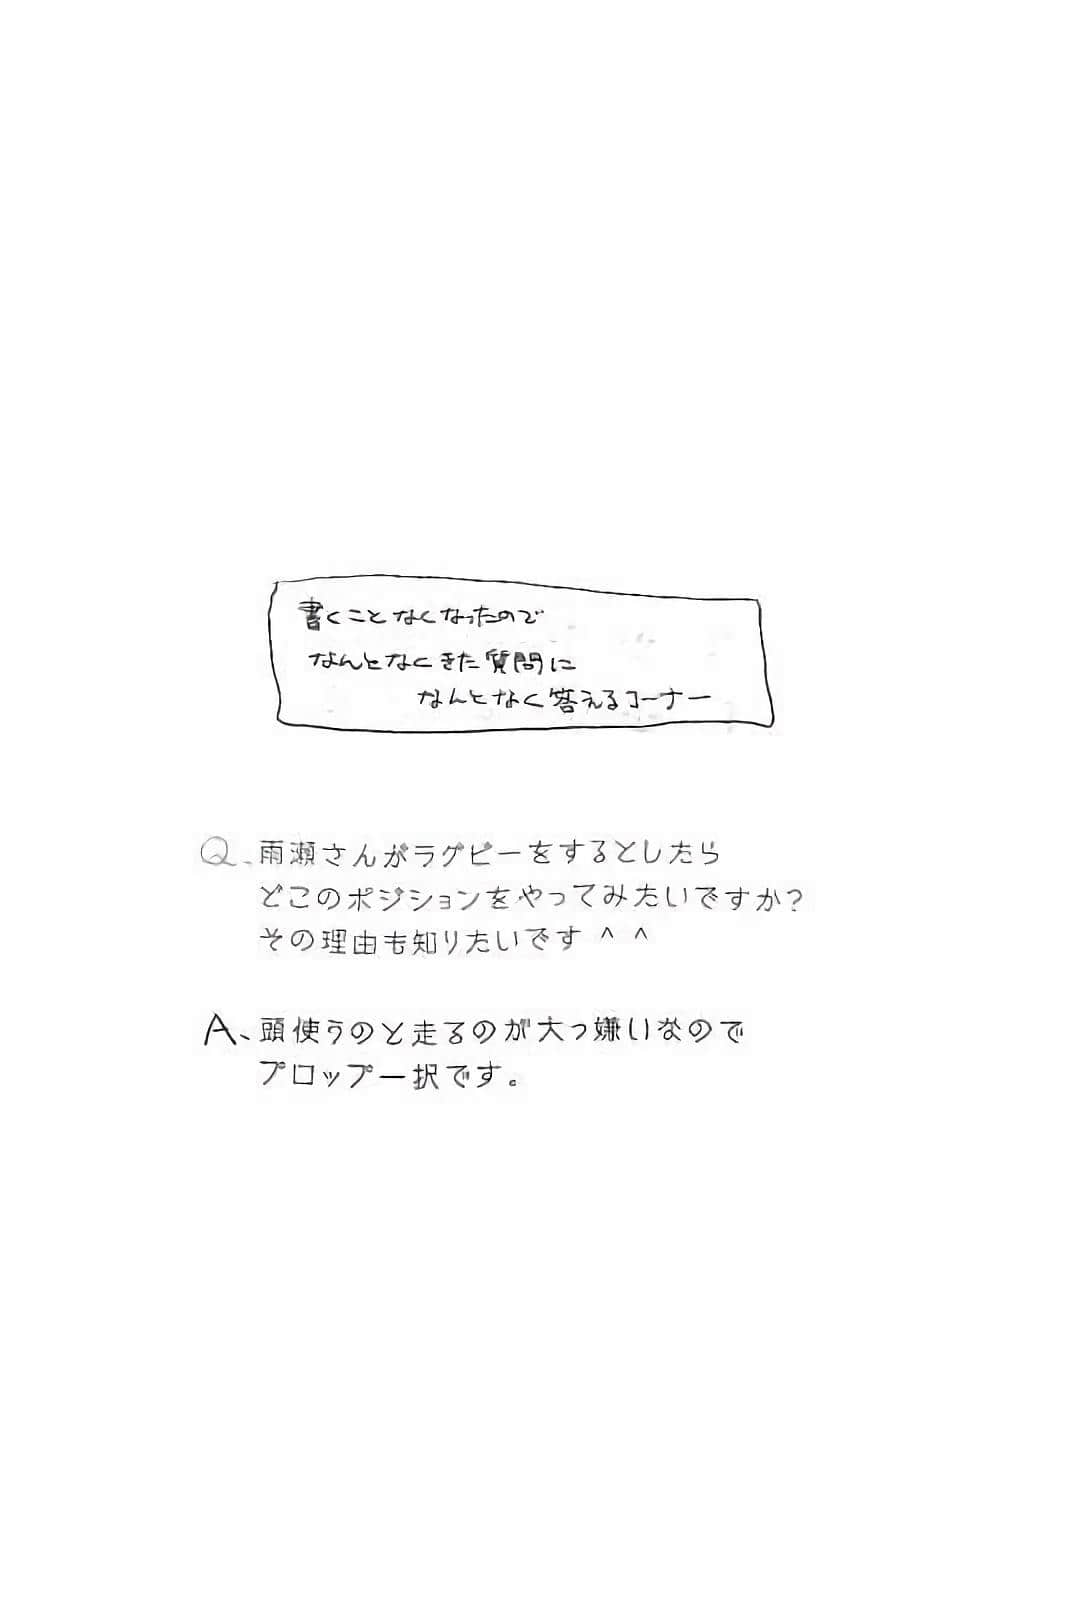 書くことなくなったので
なんとなくきた質問に
なんとなく答えるコーナー
Q、雨瀬さんがラグビーをするとしたら
どこのポジションをやってみたいですか?
その理由も知りたいです ^ ^
A、頭使うのと走るのが大っ嫌いなので
プロップ一択です。